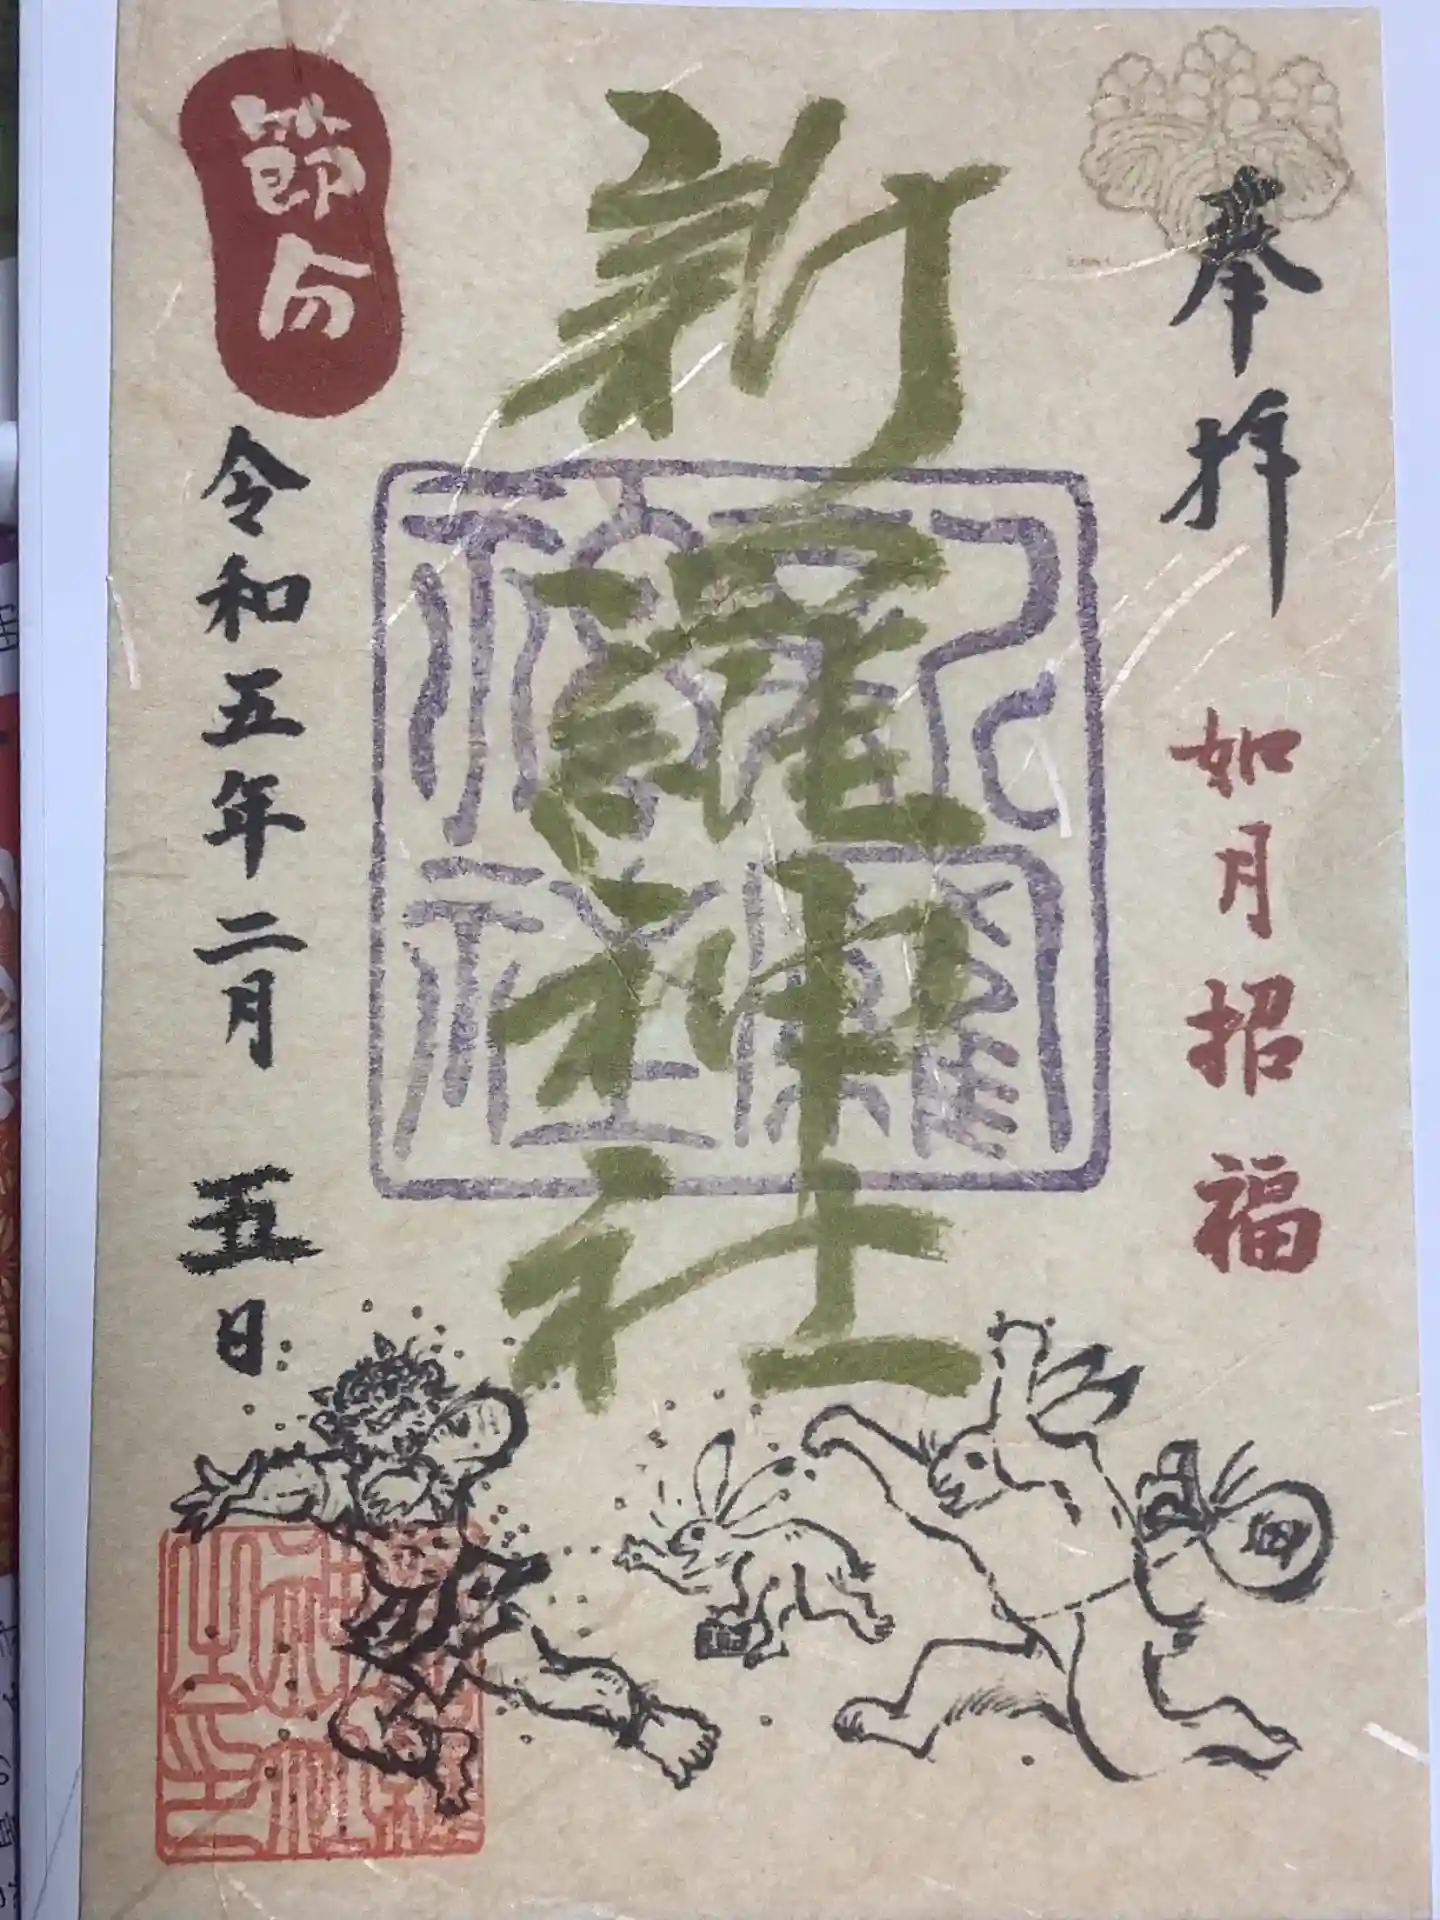 奉拝
如月招福
新羅神社
節分
令和五年二月五日